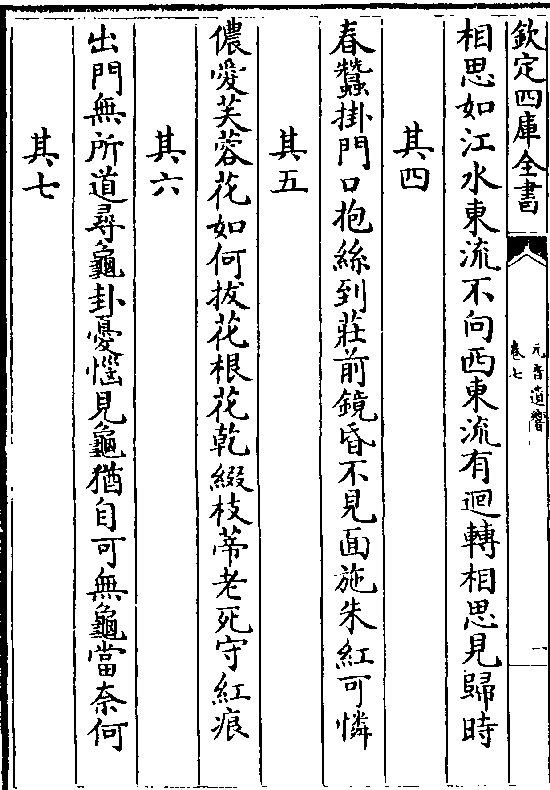 欽定四庫全書
元音遺響
卷七
一
相思如江水東流不向西東流有迴轉相思見歸時
其四
春蠶掛門口抱絲到莊前鏡昏不見面施朱紅可憐
其五
儂愛芙蓉花如何拔花根花乾綴枝蒂老死守紅痕
其六
出門無所道尋龜卦憂惱見龜猶自可無龜當奈何
其七